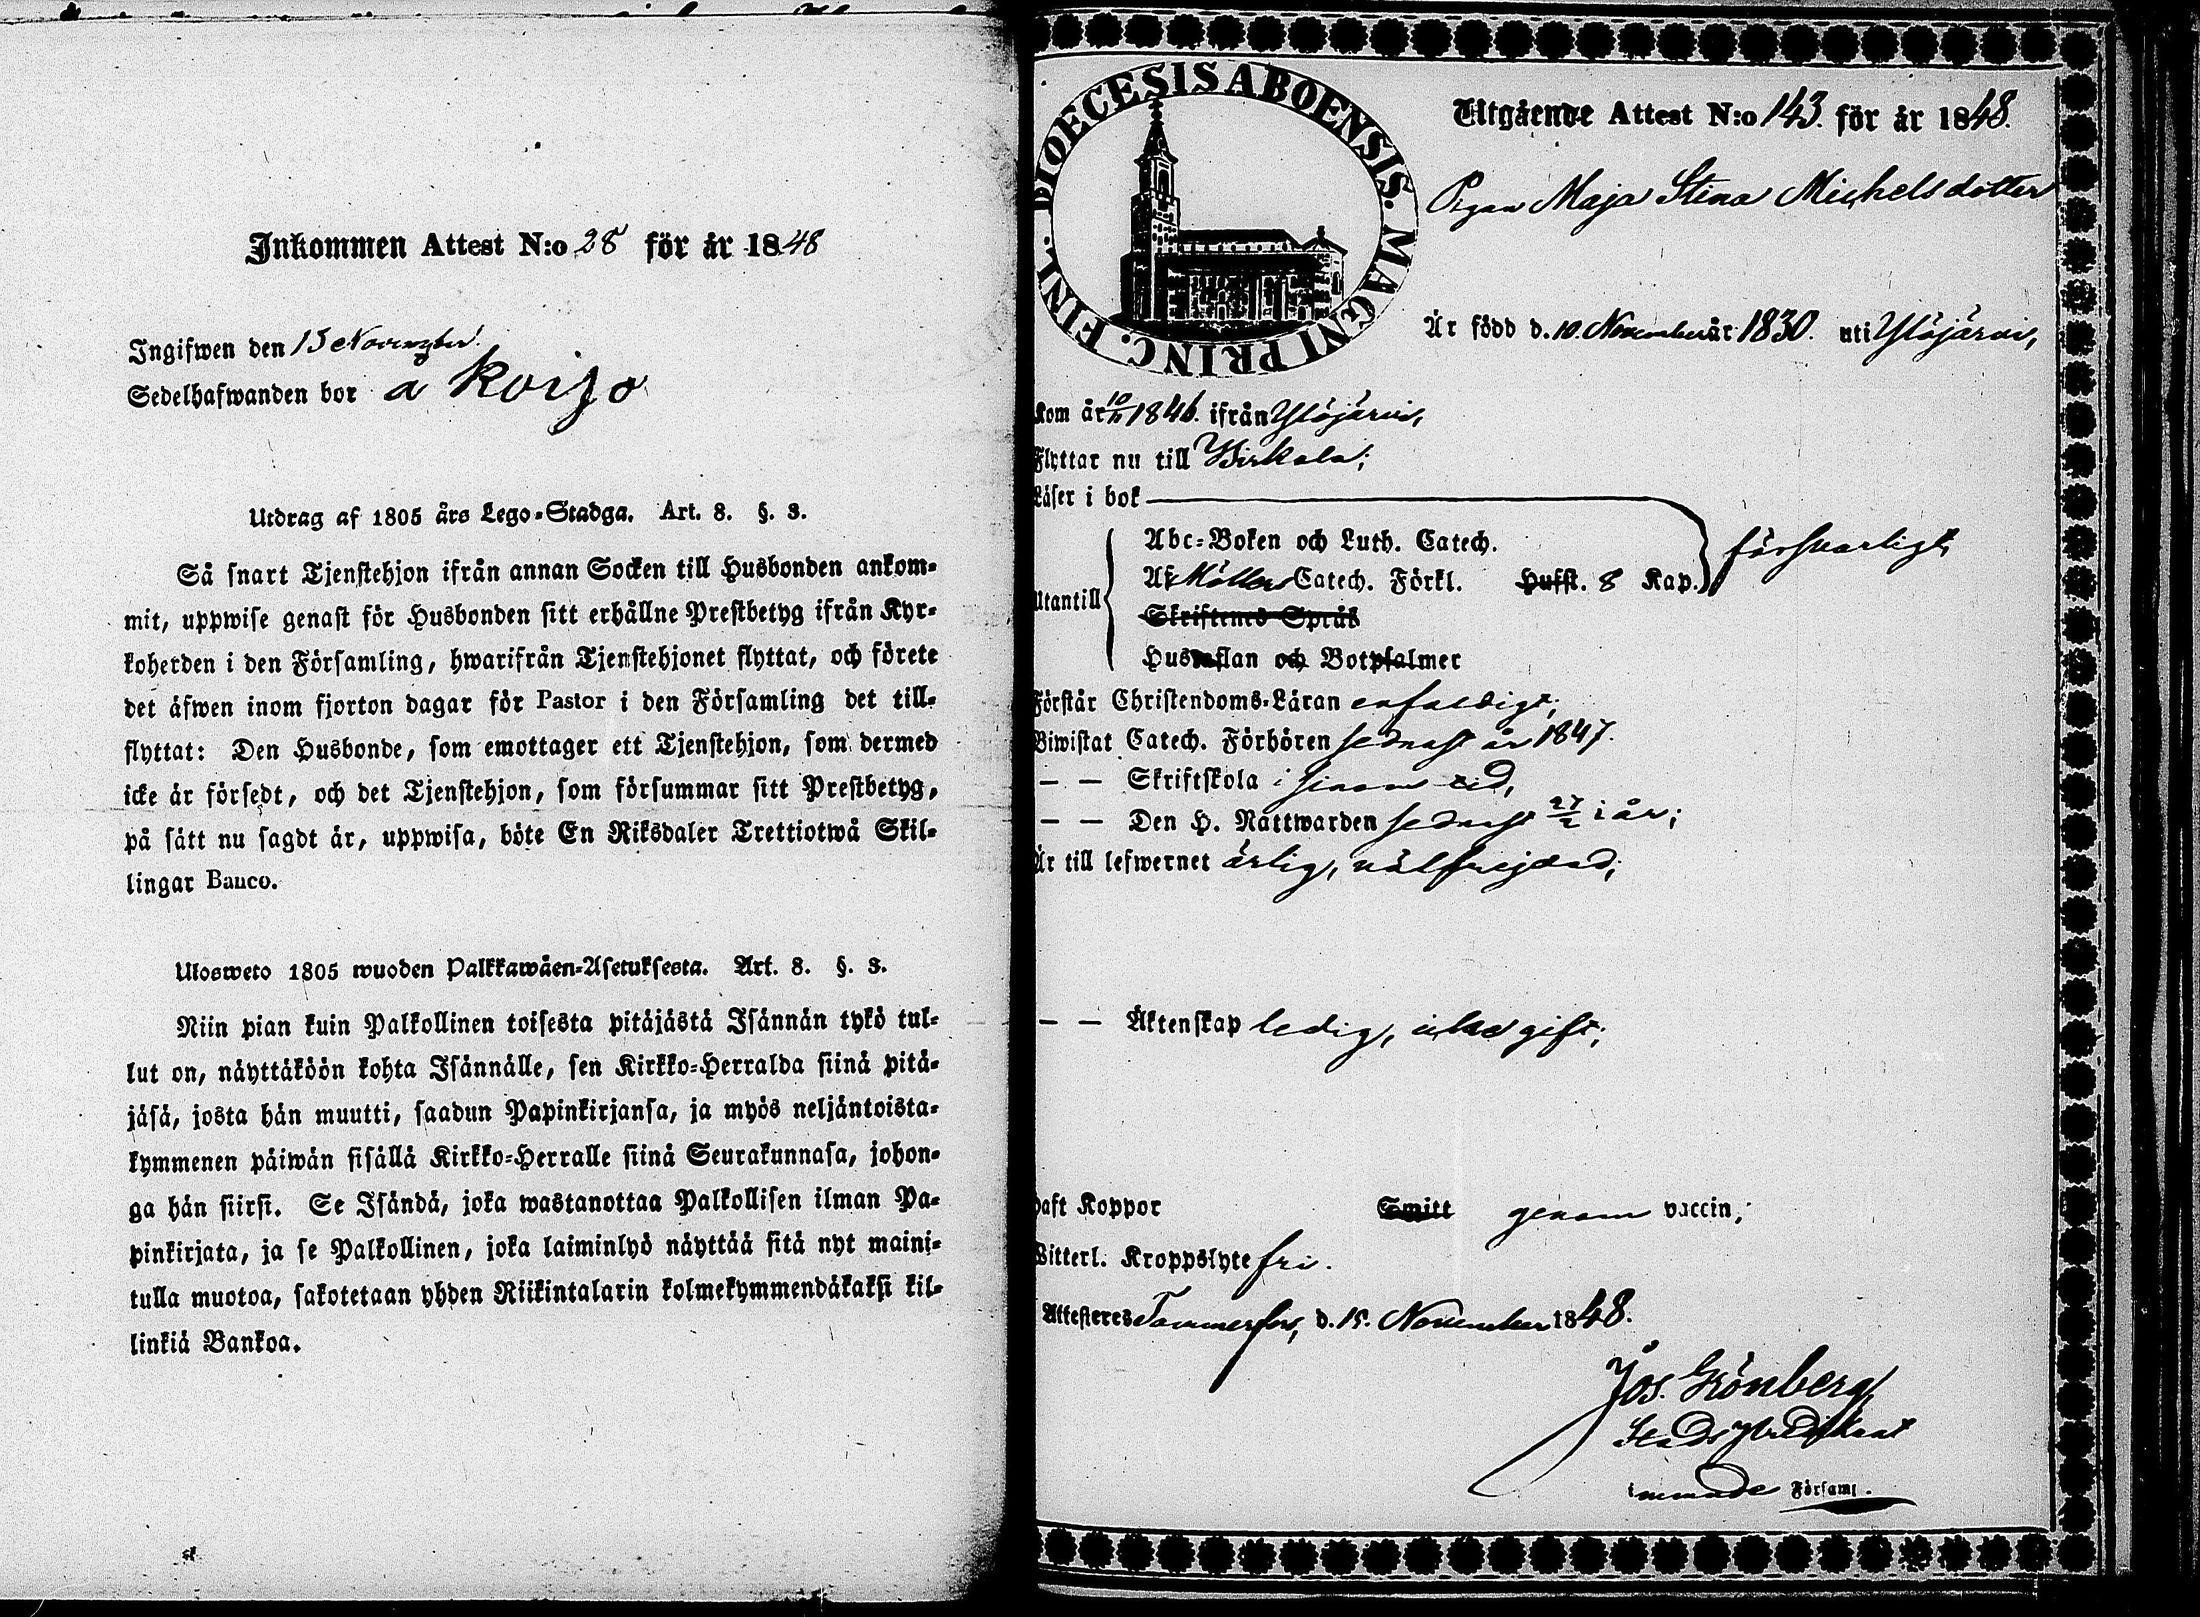 Inkommen Attest N:o 28 för år 1848
Ingifwen den 15 November
Sedelhafwanden bor å Koijo
Utdrag af 1805 års Lego-Stadga. Art. 8. §. 3.
Så snart Tjenstehjon ifrån annan Socken till Husbonden ankom-
mit, uppwise genast för Husbonden sitt erhållne Prestbetyg ifrån Kyr-
koherden i den Församling, hwarifrån Tjenstehjonet flyttat, och förete
det äfwen inom fjorton dagar för Pastor i den Församling det till-
flyttat: Den Husbonde, som emottager ett Tjenstehjon, som dermed
icke är försedt, och det Tjenstehjon, som försummar sitt Prestbetyg,
på sätt nu sagdt är, uppwisa, böte En Riksdaler Trettiotwå Skil-
lingar Banco.
Ulosweto 1805 wuoden Palkkawäen-Asetuksesta. Art. 8. §. 3.
Niin pian kuin Palkollinen toisesta pitäjästä Isännän tykö tul-
lut on, näyttäköön kohta Isännälle, sen Kirkko-Herralda siinä pitä-
jäsä, josta hän muutti, saadun Papinkirjansa, ja myös neljäntoista-
kymmenen päiwän sisällä Kirkko-Herralle siinä Seurakunnasa, johon-
ga hän siirsi. Se Isändä, joka wastanottaa Palkollisen ilman Pa-
pinkirjata, ja se Palkollinen, joka laiminlyö näyttää sitä nyt maini-
tulla muotoa, sakotetaan yhden Riikintalarin kolmekymmendäkaksi kil-
linkiä Bankoa.
DIOECESIS ABOENSIS. MAGNI PRINC. FINL.
Utgående Attest N:o 143. för år 1848.
Pigan Maja Stina Michelsdotter
Är född d. 10. November år 1830. uti Ylöjärvi,
Kom år 10/11 1846. ifrån Ylöjärvi,
Flyttar nu till Birkala;
Läser i bok
Abc-Boken och Luth. Catech.
försvarligt,
Utantill Af Möllers Catech. Förkl. Husst. 8 Kap.
Skriftenes Språk
Hustaflan och Botpsalmer
Förstår Christendoms-Läran enfaldigt;
Biwistat Catech. Förhören sednast år 1847.
— — Skriftskola i sinom tid,
— — Den H. Nattwarden sednast 27/2 i år;
Är till lefwernet ärlig, välfrejdad;
— — Äktenskap ledig, icke gift;
Haft Koppor Smitt genom vaccin;
Witterl. Kroppslyte fri.
Attesteres Tammerfors, d. 15. November 1848.
Jos. Grönberg
Stads Predikant
i nämnde Församl.